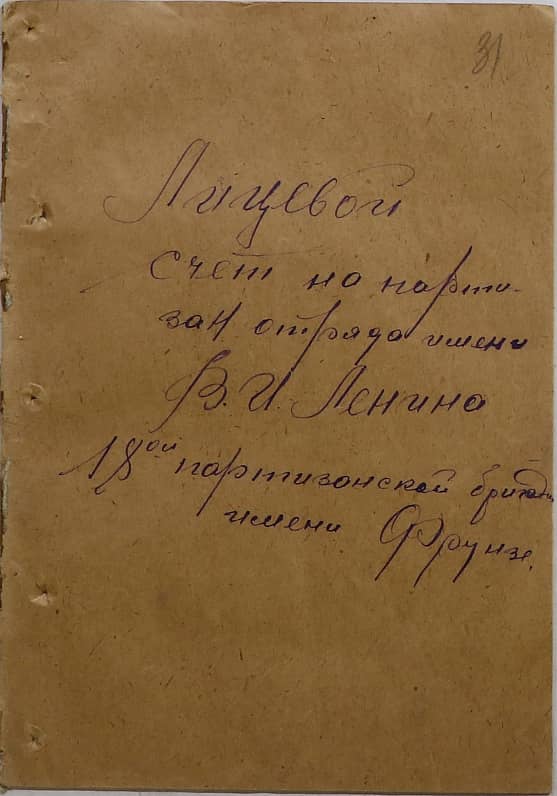 31
Лицевой
счет на парти-
зан отряда имени
В. И. Ленина
18ой партизанской бригады
имени Фрунзе.